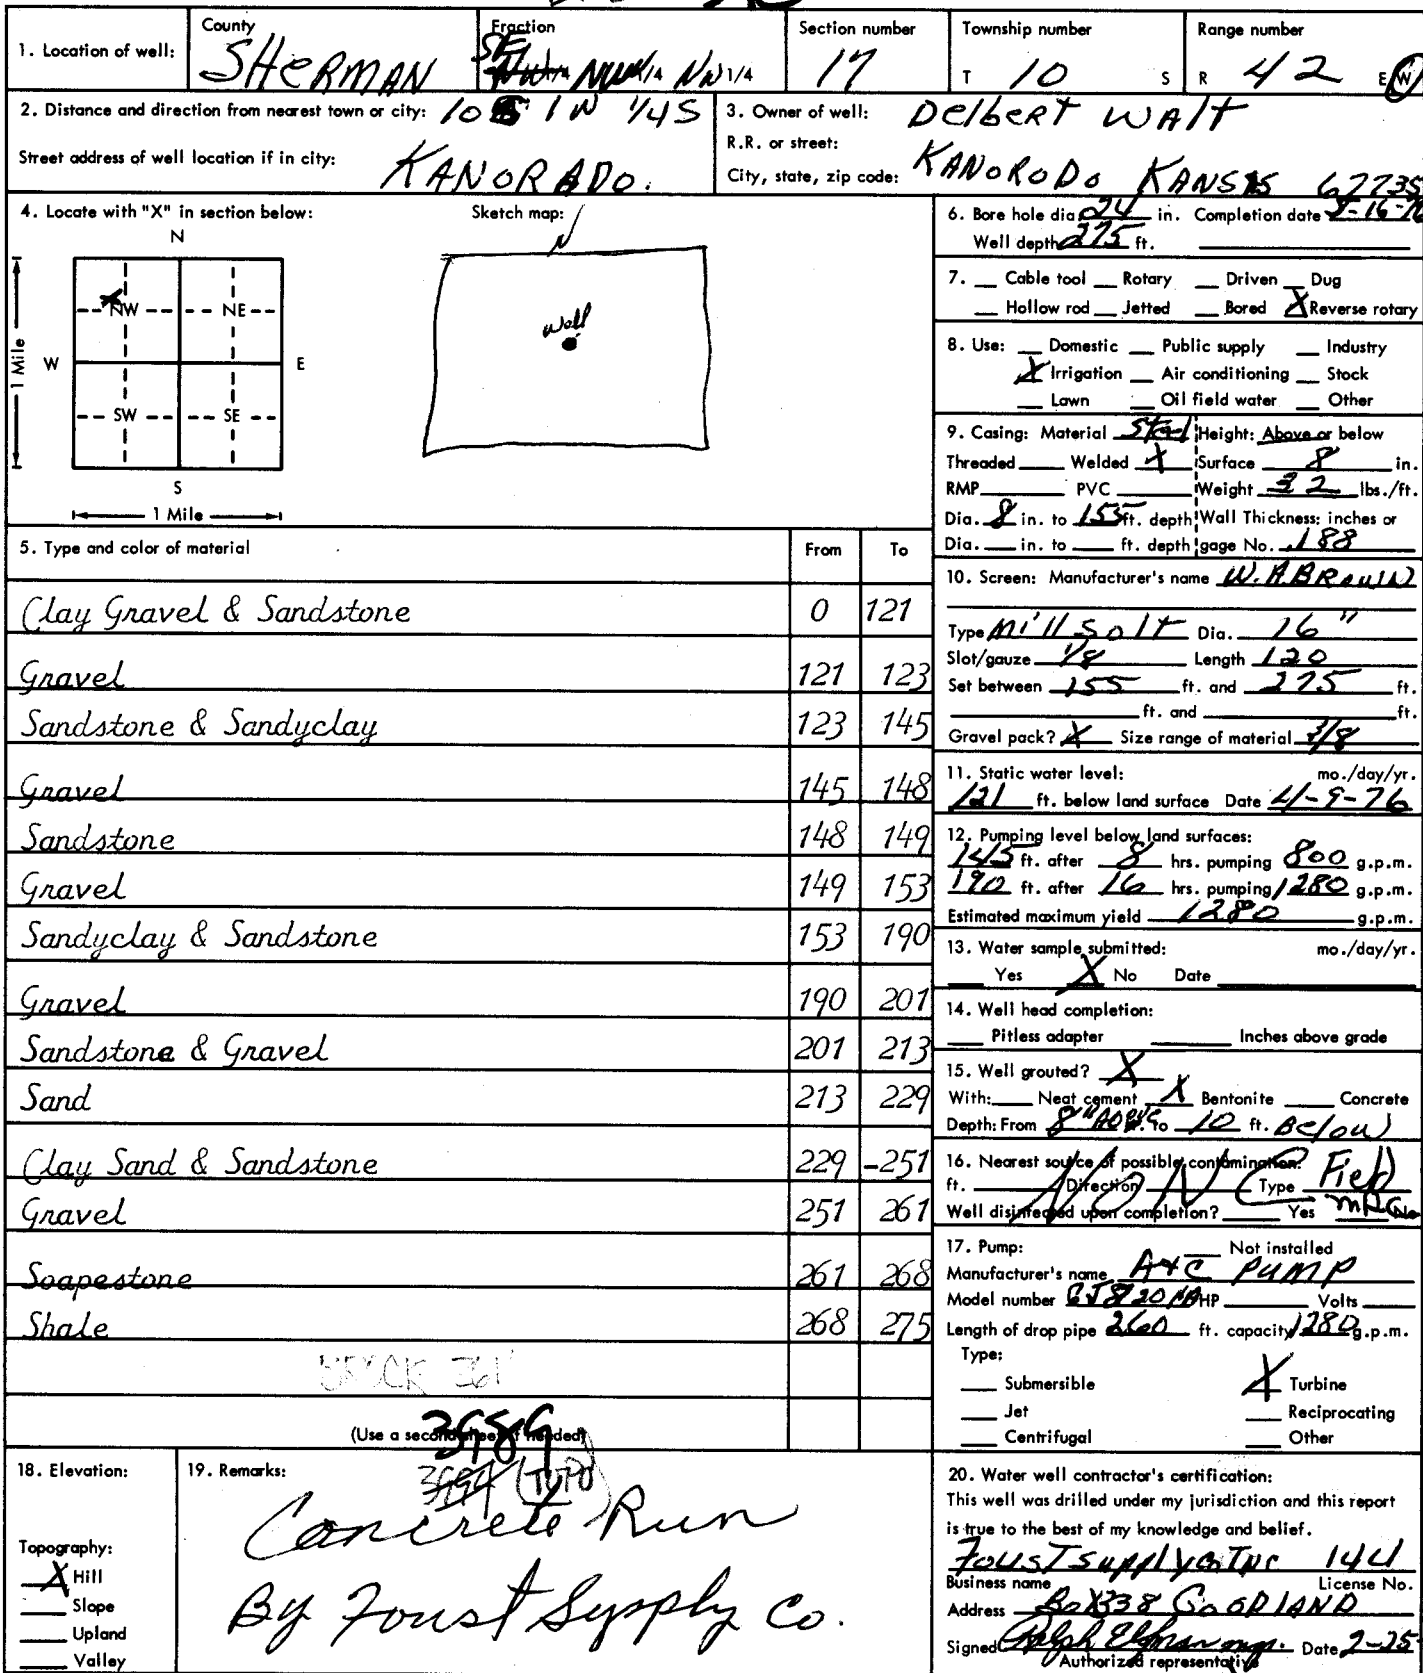 1. Location of well:
County
SHERMAN
Fraction
SE
NW 1/4 NW 1/4 NW 1/4
Section number
17
Township number
T 10 S
Range number
R 42 E W
2. Distance and direction from nearest town or city: 10 S 1 W 1/4 S
Street address of well location if in city: KANORADO.
3. Owner of well: DelberT WAlT
R.R. or street:
City, state, zip code: KANORODo KANSAS 67735
4. Locate with "X" in section below:
N
NW NE
W E
SW SE
S
1 Mile
1 Mile
Sketch map:
N
well
5. Type and color of material From To
Clay Gravel & Sandstone 0 121
Gravel 121 123
Sandstone & Sandyclay 123 145
Gravel 145 148
Sandstone 148 149
Gravel 149 153
Sandyclay & Sandstone 153 190
Gravel 190 201
Sandstone & Gravel 201 213
Sand 213 229
Clay Sand & Sandstone 229 -251
Gravel 251 261
Soapestone 261 268
Shale 268 275
(Use a second sheet if needed)
3989
3994 (TOPO)
6. Bore hole dia. 24 in. Completion date
Well depth 275 ft.
7. Cable tool Rotary Driven Dug
Hollow rod Jetted Bored X Reverse rotary
8. Use: Domestic Public supply Industry
X Irrigation Air conditioning Stock
Lawn Oil field water Other
9. Casing: Material Steel Height: Above or below
Threaded Welded X Surface 8 in.
RMP PVC Weight 32 lbs./ft.
Dia. 8 in. to 155 ft. depth Wall Thickness: inches or
Dia. in. to ft. depth gage No. .188
10. Screen: Manufacturer's name W.A.BROWN
Type mill solt Dia. 16"
Slot/gauze 1/8 Length 120
Set between 155 ft. and 275 ft.
ft. and ft.
Gravel pack? X Size range of material 3/8
11. Static water level: mo./day/yr.
121 ft. below land surface Date 4-9-76
12. Pumping level below land surfaces:
145 ft. after 8 hrs. pumping 800 g.p.m.
190 ft. after 16 hrs. pumping 1280 g.p.m.
Estimated maximum yield 1280 g.p.m.
13. Water sample submitted: mo./day/yr.
Yes X No Date
14. Well head completion:
Pitless adapter Inches above grade
15. Well grouted? X
With: Neat cement X Bentonite Concrete
Depth: From 8" ABOVE to 10 ft. Below
16. Nearest source of possible contamination: Field
ft. Direction NONE Type
Well disinfected upon completion? Yes No
17. Pump: Not installed
Manufacturer's name A+C PUMP
Model number HP Volts
Length of drop pipe 260 ft. capacity 1280 g.p.m.
Type:
Submersible X Turbine
Jet Reciprocating
Centrifugal Other
18. Elevation:
Topography:
X Hill
Slope
Upland
Valley
19. Remarks:
Concrete Run
By Foust Sypply Co.
20. Water well contractor's certification:
This well was drilled under my jurisdiction and this report
is true to the best of my knowledge and belief.
Foust supply Co Inc 144
Business name License No.
Address Box 338 GOODLAND
Signed Ralph Date 2-25
Authorized representative